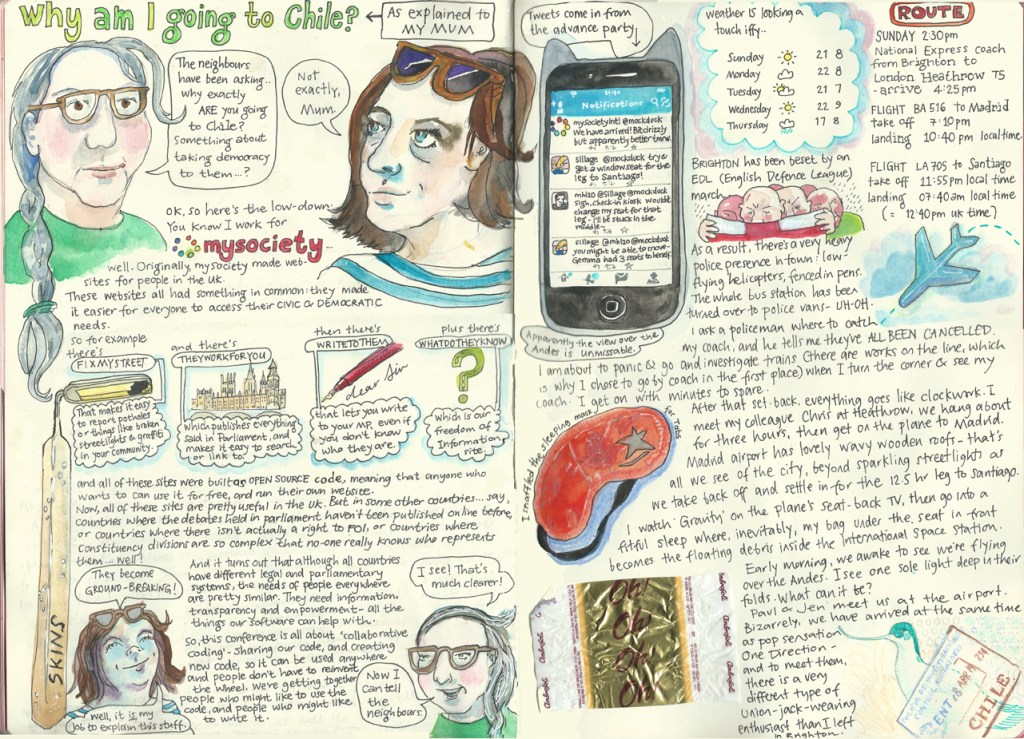 Why am I going to Chile?
As explained to
MY MUM
The neighbours
have been asking..
why exactly
ARE you going
to Chile?
Something about
taking democracy
to them...?
Not
exactly,
Mum.
OK, so here's the low-down:
You know I work for
mysociety...
well. Originally, mysociety made web-
sites for people in the UK.
These websites all had something in common: they made
it easier for everyone to access their CIVIC & DEMOCRATIC
needs.
So for example
there's
FIXMYSTREET
That makes it easy
to report potholes
or things like broken
streetlights & graffiti
in your community.
and there's
THEYWORKFORYOU
which publishes everything
said in Parliament, and
makes it easy to search
or link to.
then there's
WRITETOTHEM
dear Sir
that lets you write
to your MP, even if
you don't know
who they are.
plus there's
WHATDOTHEYKNOW
?
which is our
freedom of
Information
site.
and all of these sites were built as OPEN SOURCE CODE, meaning that anyone who
wants to can use it for free, and run their own website.
Now, all of these sites are pretty useful in the UK. But in some other countries... say,
countries where the debates held in parliament haven't been published online before,
or countries where there isn't actually a right to FOI, or countries where
constituency divisions are so complex that no-one really knows who represents
them... well!
SKIINS
They become
GROUND-BREAKING!
Well, it is my
job to explain this stuff.
And it turns out that although all countries
have different legal and parliamentary
systems, the needs of people everywhere
are pretty similar. They need information,
transparency and empowerment - all the
things our software can help with.
So, this conference is all about 'collaborative
coding' - sharing our code, and creating
new code, so it can be used anywhere
and people don't have to reinvent
the wheel. We're getting together
people who might like to use the
code, and people who might like
to write it.
I see! That's
much clearer!
Now I
can tell
the
neighbours.
Tweets come in from
the advance party
Notifications
mysocietyIntl @mockduck
We have arrived! Bit drizzly
but apparently better tmrw.
sillage @mockduck try &
get a window seat for the
leg to Santiago!
mhl20 @sillage @mockduck
sigh, check-in kiosk wouldn't
change my seat for that
leg - i'll be stuck in the
middle..
sillage @mhl20 @mockduck
you might be able to move -
Gemma had 3 seats to herself.
Apparently the view over the
Andes is unmissable.
weather is looking a
touch iffy..
Sunday 21 8
Monday 22 8
Tuesday 21 7
Wednesday 22 9
Thursday 17 8
ROUTE
SUNDAY 2:30pm
National Express coach
from Brighton to
London Heathrow T5
- arrive 4:25pm
FLIGHT BA 516 to Madrid
take off 7:10pm
landing 10:40pm local time
FLIGHT LA705 to Santiago
take off 11:55pm local time
landing 07:40am local time
(= 12:40pm uk time)
BRIGHTON has been beset by an
EDL (English Defence League)
march.
As a result, there's a very heavy
police presence in town: low-
flying helicopters, fenced in pens.
The whole bus station has been
turned over to police vans - UH-OH.
I ask a policeman where to catch
my coach, and he tells me they've ALL BEEN CANCELLED.
I am about to panic & go and investigate trains (there are works on the line, which
is why I chose to go by coach in the first place) when I turn the corner & see my
coach. I get on with minutes to spare.
I snaffled the sleeping mask
for Tabs
After that set-back, everything goes like clockwork. I
meet my colleague Chris at Heathrow, we hang about
for three hours, then get on the plane to Madrid.
Madrid airport has lovely wavy wooden roofs - that's
all we see of the city, beyond sparkling streetlights as
we take back off and settle in for the 12.5 hr leg to Santiago.
I watch 'Gravity' on the plane's seat-back TV, then go into a
fitful sleep where, inevitably, my bag under the seat in front
becomes the floating debris inside the International Space Station.
Early morning, we awake to see we're flying
over the Andes. I see one sole light deep in their
folds. What can it be?
Paul & Jen meet us at the airport.
Bizarrely, we have arrived at the same time
as pop sensation
One Direction -
and to meet them,
there is a very
different type of
Union-jack-wearing
enthusiast than I left
in Brighton.
Oh!
Oh!
Oh!
Oh!
ENT
CHILE